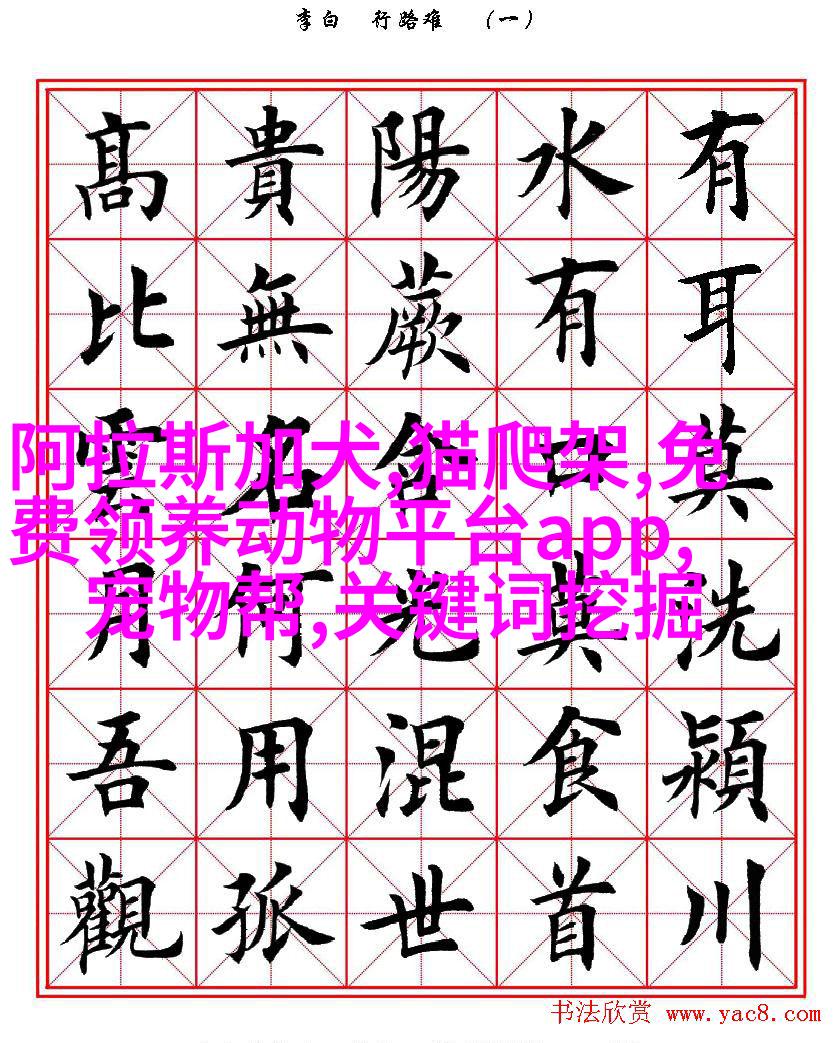 李白 行路难 （一）
有耳莫洗潁川
水有口莫食首
陽蕨含光混世
貴無名何用孤
高比雲月吾觀
阿拉斯加犬,猫爬架,免
费领养动物平台app,
宠物帮,关键词挖掘
书法欣赏 www.yac8.com